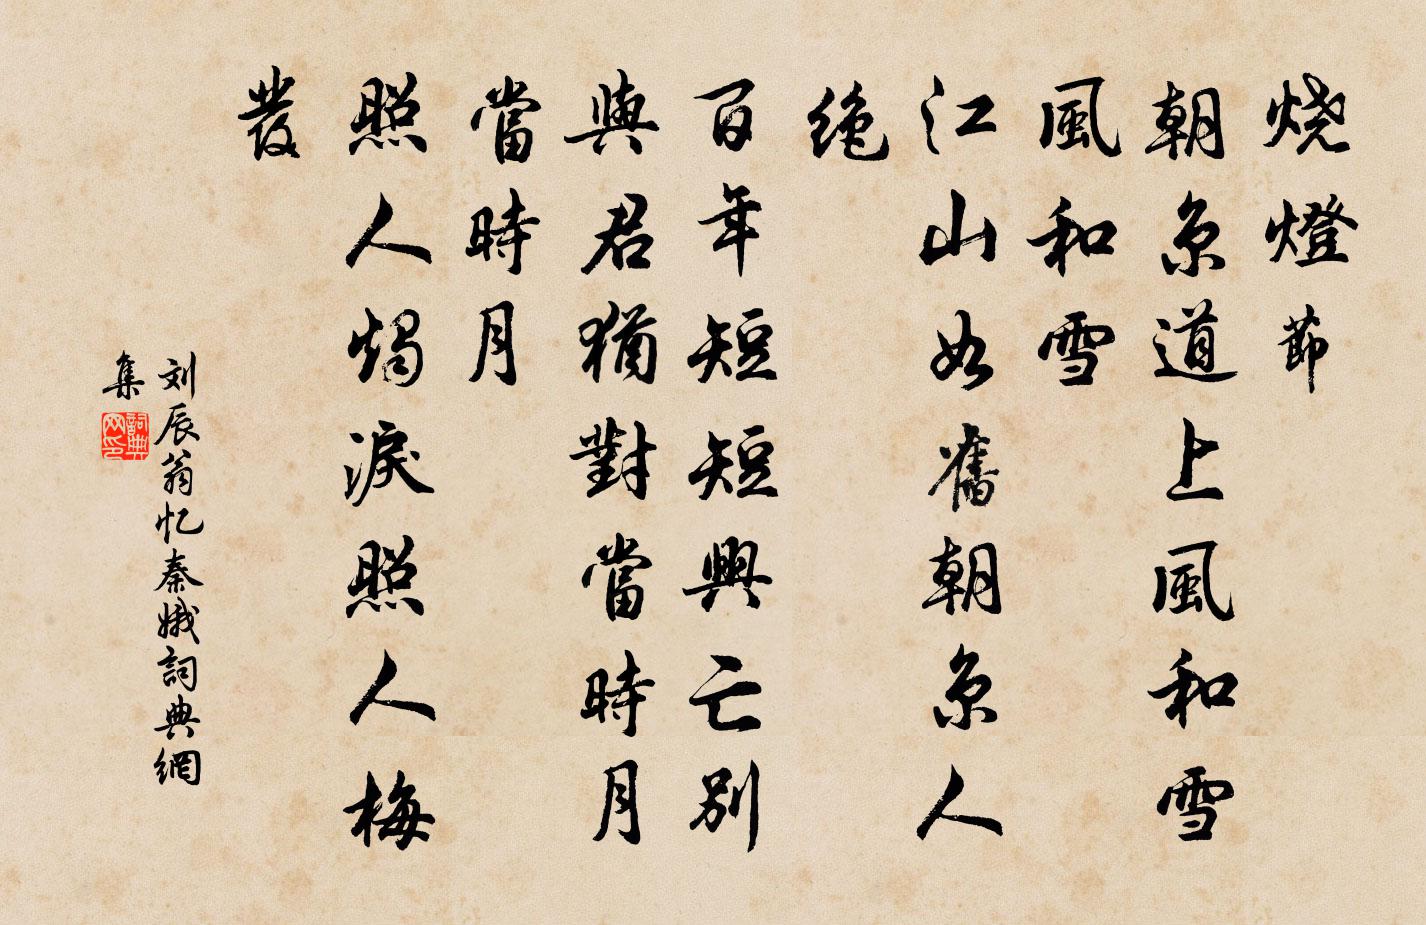 烧燈節
朝京道上風和雪
風和雪
江山如舊朝京人
絶
百年短短興亡別
與君猶對當時月
當時月
照人燭淚照人梅
發
刘辰翁忆秦娥詞典網
集
詞典
网印